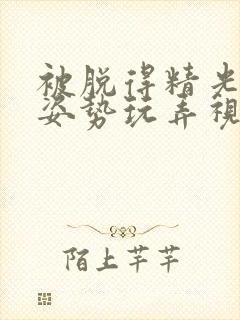 被脱得精光
姿势玩弄视
陌上芊芊